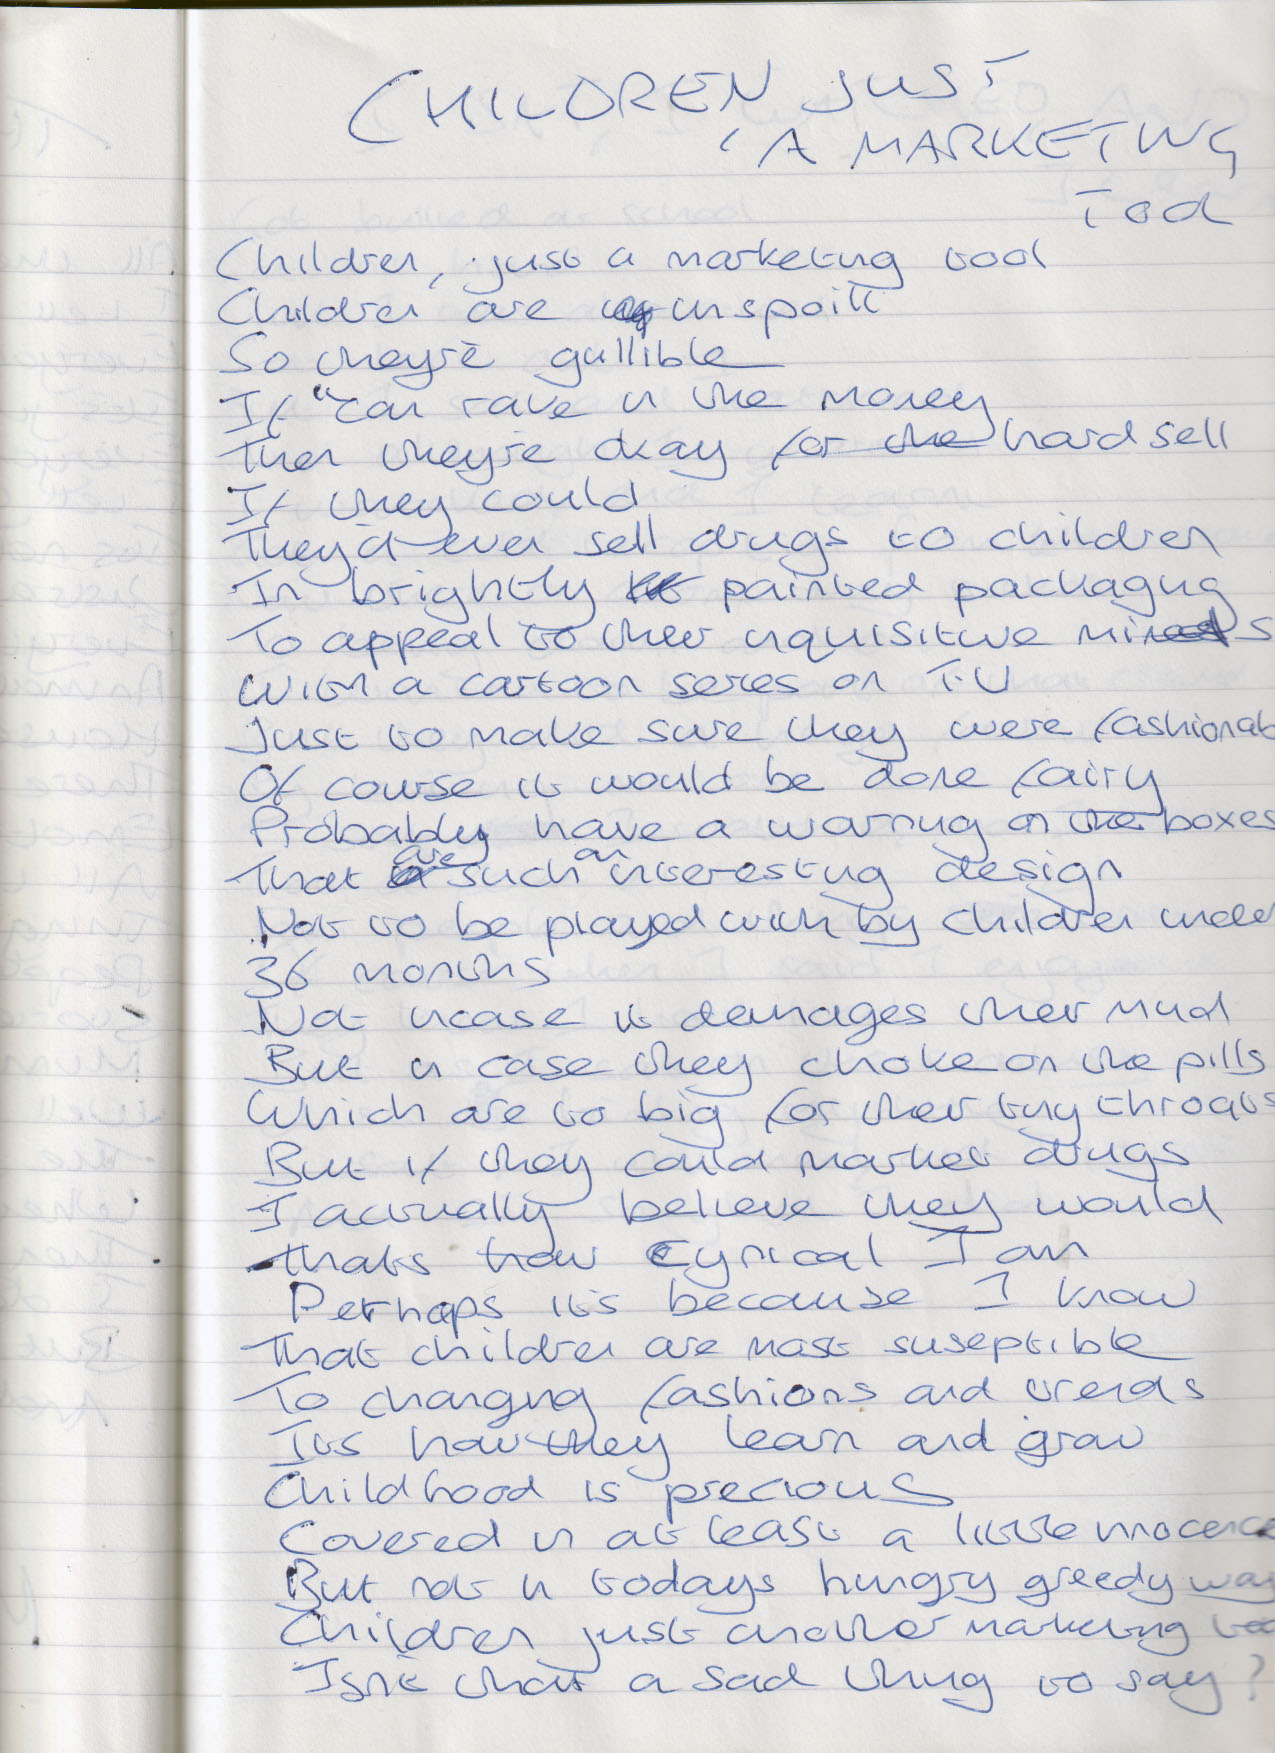 CHILDREN JUST
A MARKETING
TOOL
Children, just a marketing tool
Children are unspoilt
So they're gullible
If "can rake in the money
Then they're okay for the hard sell
If they could
They'd even sell drugs to children
In brightly painted packaging
To appeal to their inquisitive minds
With a cartoon series on T.V
Just to make sure they were fashionab
Of course it would be done fairy
Probably have a warning on the boxes
That are such an interesting design
Not to be played with by children under
36 months
Not incase it damages their mind
But in case they choke on the pills
Which are to big for their tiny throats
But if they could market drugs
I actually believe they would
thats how cynical I am
Perhaps it's because I know
That children are most suseptible
To changing fashions and trends
Its how they learn and grow
Childhood is precious
Covered in at least a little innocence
But not in todays hungry greedy way
Children just another marketing too
Isn't that a sad thing to say?